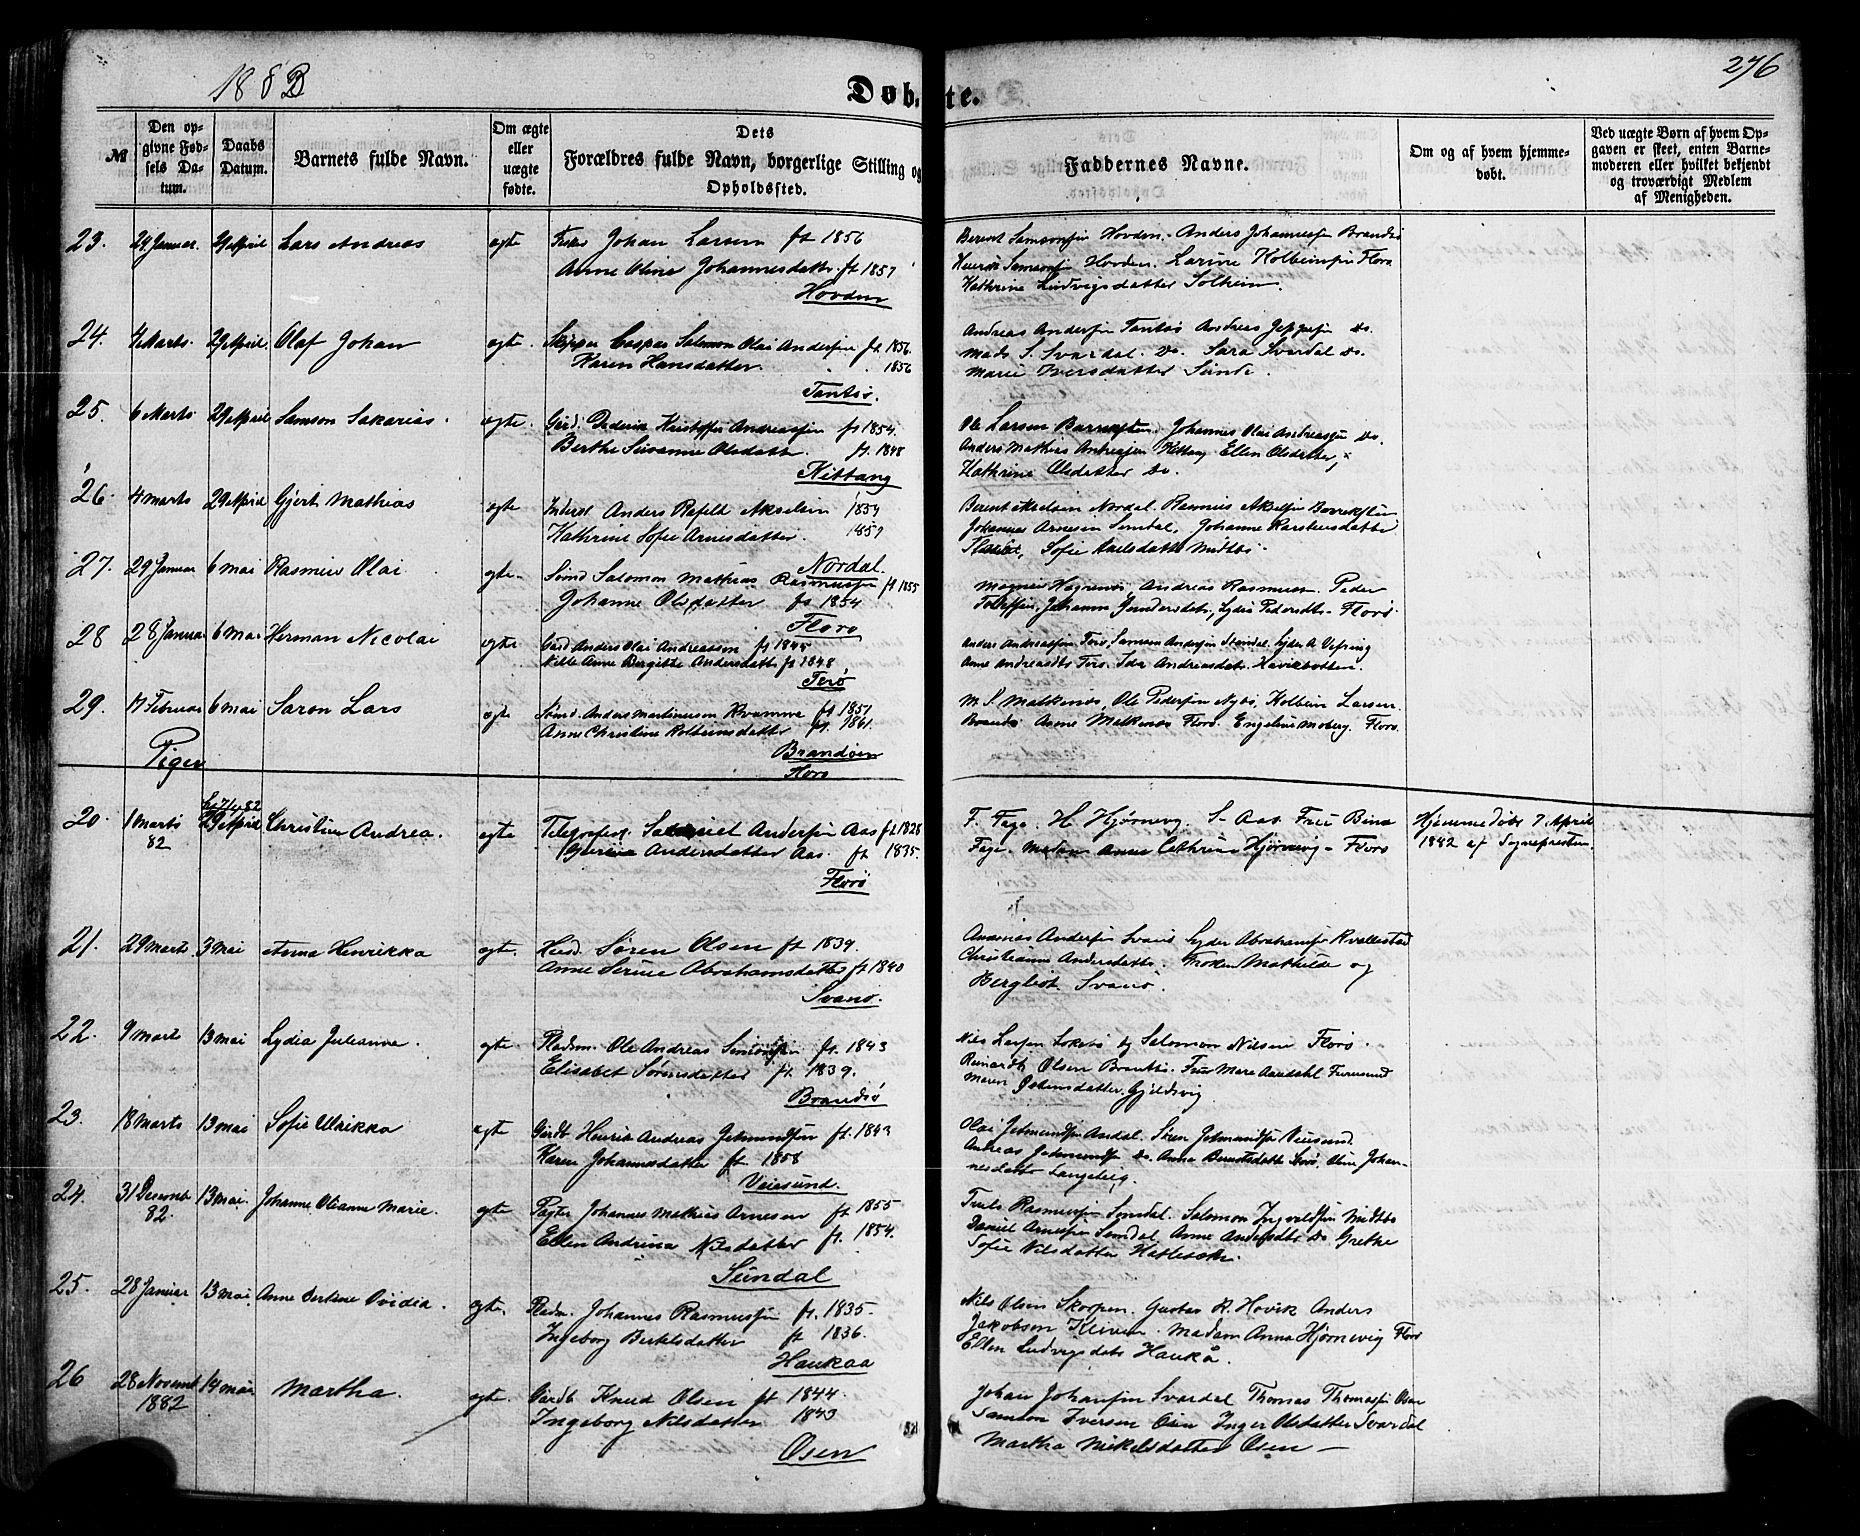 1883
Døbte.
276
№
Den opgivne Fødsels Datum.
Daabs Datum.
Barnets fulde Navn.
Om ægte eller uægte fødte.
Dets Forældres fulde Navn, borgerlige Stilling og Opholdssted.
Faddernes Navne.
Om og af hvem hjemmedøbt.
Ved uægte Børn af hvem Opgaven er skeet, enten Barnemoderen eller hvilket bekjendt og troværdigt Medlem af Menigheden.
23. 29 Januar. 29 April Lars Andreas ægte Johan Larsen ft 1856
Anne Oline Johannesdatter ft 1857
Hovden
Berent Samsonsen Hovden. Anders Johannessen Brandsø
Henrik Samsonsen Hovden. Larine Kolbeinsen Florø
Kathrine Ludvigsdatter Solheim.
24. 4 Marts. 29 April. Olaf Johan ægte. Skipper Casper Salomon Olai Andersen ft. 1856.
Karen Hansdatter. 1856
Tantsø.
Andreas Andersen Tantsø Andreas Jeppesen Do.
Mads S. Svardal. Do. Sara Svardal Do.
Marie Iversdatter Sunde.
25. 6 Marts 29 April Samson Sakarias. ægte. Gård. Dederik Kristoffer Andreassen ft 1854.
Berthe Susanne Olsdatter. ft. 1848
Kittang
Ole Larsen Barrestad. Johannes Olai Andreassen Do.
Anders Mathias Andreassen Kittang Ellen Olsdatter,
Kathrine Olsdatter Do.
26. 4 Marts 29 April Gjert Mathias ægte Inderst Anders Rafeld Akselsen 1854
Kathrine Sofie Arnesdatter. 1857
Nordal.
Berent Akselsen Nordal. Rasmus Akselsen
Johannes Arnesen Sundal, Johanne Karstensdatter
Florø, Sofie Akselsdatter Midtbø.
27. 29 Januar 6 Mai Rasmus Olai ægte. Sömd Salomon Mathias Rasmussen ft 1855
Johanne Olsdatter ft 1854
Florø
Magnus Hagenes, Andreas Rasmussen. Peder
Tollefsen, Johanne Gundersdatr, Lydia Pedersdtr. Florø.
28 28 Januar 6 Mai Herman Nicolai ægte Gård Anders Olai Andreassen ft 1845
Nille Anne Bergitte Andersdatter ft 1848
Terø
Anders Andreassen Terø, Samson Andersen Standal, Lyder A Vefring
Anne Andreasdtr Terø. Ida Andreasdatr. Havikbotten.
29. 17 Februar 6 Mai Saron Lars ægte Sömd. Anders Martinesen Kvamme ft. 1857
Anne Christine Kolbeinsdatter ft. 1861.
Brandsøen
Florø
M. S. Malkenes, Ole Pedersen Nybø, Kolbein Larsen
Brandsø Anne Malkenes Florø. Engeline Moberg. Florø.
Piger
20. 1 Marts 82 29 April Christine Andrea. ægte Telegrafist. Samuel Andersen Aas ft 1828
Gurine Andersdatter Aas. ft 1835.
Florø
F. Fage. H Hjørnevg. S. Aas. Frue Bina
Fage. Madam Anne Cathrine Hjørnevg. Florø
Hjemmedøbt 7 April
1882 af Sognepresten.
21. 29 Marts 3 Mai Anna Henrikka ægte. Husd. Søren Olsen ft 1839.
Anne Serine Abrahamsdatter ft 1840
Svanø.
Ananias Andersen Svanø Lyder Abrahamsen Kvallestad
Christianne Andersdatter. Frøken Mathilde og
Bergliot Svanø.
22. 9 Marts 13 Mai Lydia Julianne. ægte. Pladsm. Ole Andreas Simonsen ft. 1843
Elisabet Sørensdatter ft. 1839.
Brandsø
Nils Larsen og Salomon Nilsen Florø.
Reinardt Olsen Brandsø. Frue Mare Aardahl Furusund
Maren Jetmundsdatter, Gjeldsvig
23. 18 Marts 13 Mai Sofie Ulrikka ægte Gårdb. Henrik Andreas Jetmundsen ft. 1843
Karen Johannesdatter ft 1858
Veiesund.
Olai Jetmundsen Ardal. Søren Jetmundsen Veiesund.
Andreas Jetmundsen Do. Anna Berentsdatter Sørø, Oline Johannesdatter Langeleig.
24. 31 Decemb 82. 13 Mai. Johanne Oleanne Marie. ægte Pagter Johannes Mathias Arnesen ft 1855
Ellen Andrina Nilsdatter ft. 1854.
Sundal
Truls Rasmussen Sundal. Salomon Ingvaldsen Midtbø
Daniel Arnesen Sundal, Anne Andersdtr Do Grethe
Sofie Nilsdatter Hatleset.
25. 28 Januar 13 Mai Anne Bertine Ovidia. ægte. Pladm. Johannes Rasmussen ft. 1835.
Ingeborg Bertelsdatter ft 1836.
Haukaa
Nils Olsen Skorpen. Gustav R. Hovik Anders
Jakobsen Kleiven. Madam Anna Hjørnevig Florø
Ellen Ludvigsdatr Haukå.
26 28 Novemb 1882 14 Mai Martha. ægte. Gårdb Knud Olsen ft 1844.
Ingeborg Nilsdatter 1843
Osen
Johan Johansen Svardal Thomas Thomassen Osen
Samson Iversen Osen Inger Olsdatter Svardal
Martha Mikkelsdatter Osen